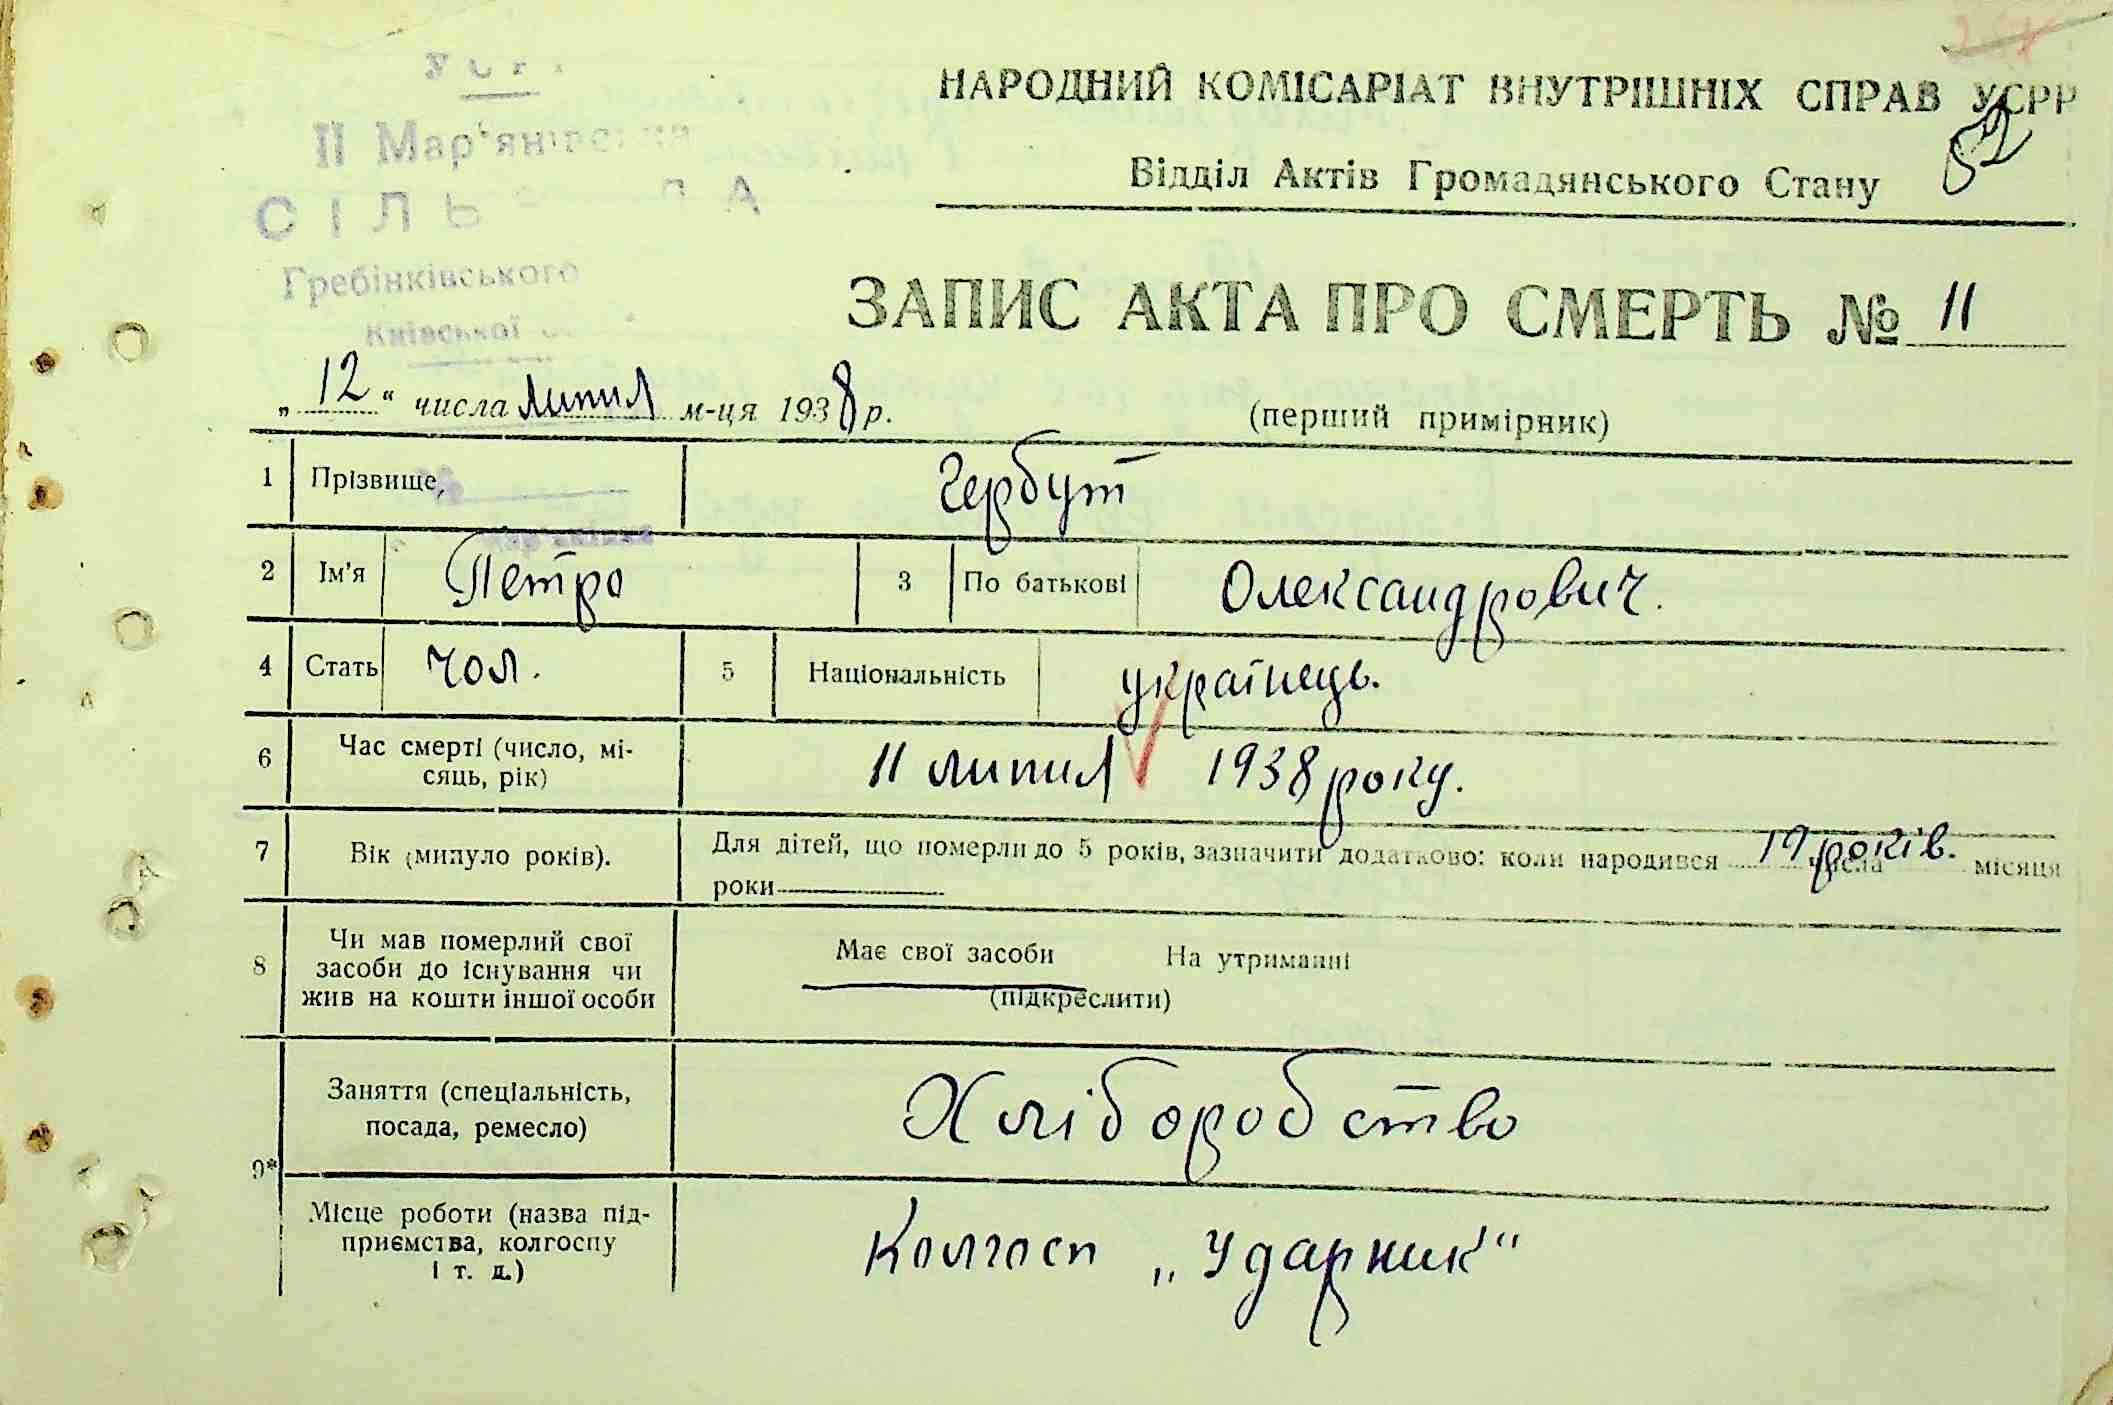 ІІ Мар'янівська
Гребінківського
Київської
НАРОДНИЙ КОМІСАРІАТ ВНУТРІШНІХ СПРАВ УСРР
52
Відділ Актів Громадянського Стану
ЗАПИС АКТА ПРО СМЕРТЬ № 11
„12“ числа липня м-ця 1938 р. (перший примірник)
1 Прізвище, Гербут
2 Ім'я Петро 3 По батькові Олександрович.
4 Стать чол. 5 Національність українець.
6 Час смерті (число, мі-
сяць, рік) 11 липня 1938 року.
7 Вік (минуло років). Для дітей, що померли до 5 років, зазначити додатково: коли народився 19 років. числа місяця
роки
8 Чи мав померлий свої
засоби до існування чи
жив на кошти іншої особи
Має свої засоби На утриманні
(підкреслити)
9* Заняття (спеціальність,
посада, ремесло) Хліборобство
Місце роботи (назва під-
приємства, колгоспу
і т. д.) Колгосп „Ударник“